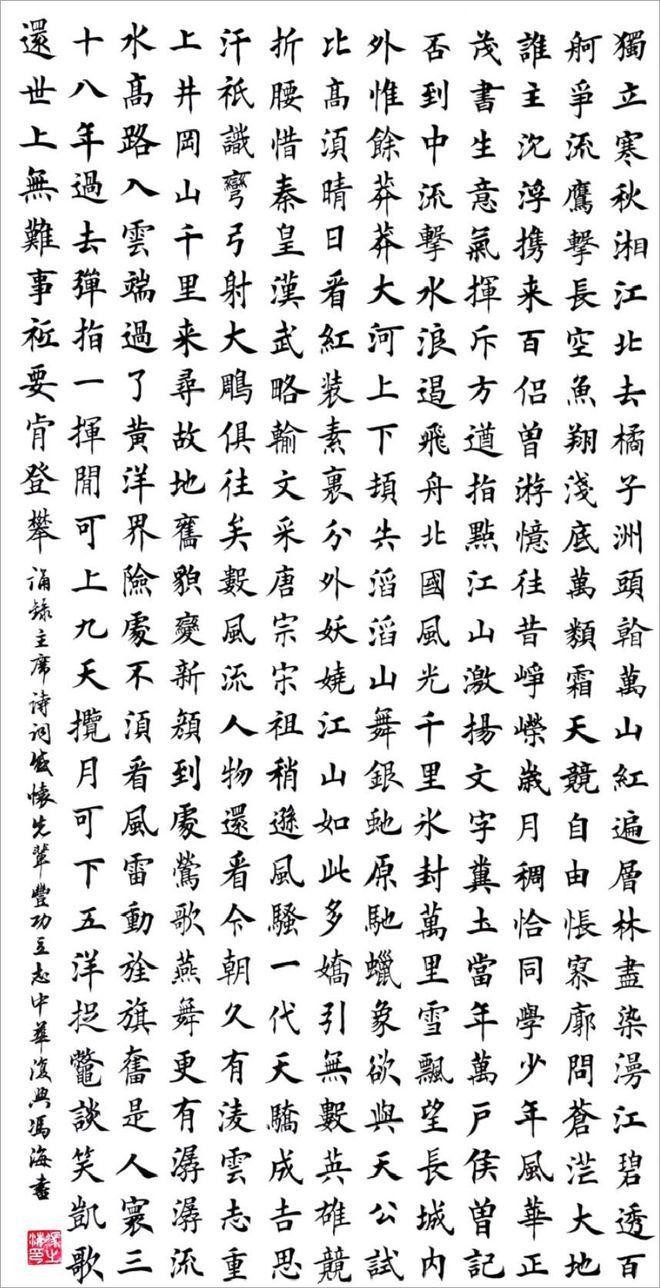 獨立寒秋湘江北去橘子洲頭看萬山紅遍層林盡染漫江碧透百
舸爭流鷹擊長空魚翔淺底萬類霜天競自由悵寥廓問蒼茫大地
誰主沈浮携来百侶曾游憶往昔崢嶸歲月稠恰同學少年風華正
茂書生意氣揮斥方遒指點江山激揚文字糞土當年萬戶侯曾記
否到中流擊水浪遏飛舟北國風光千里氷封萬里雪飄望長城内
外惟餘莽莽大河上下頓失滔滔山舞銀虵原馳蠟象欲與天公試
比髙須晴日看紅装素裹分外妖嬈江山如此多嬌引無數英雄競
折腰惜秦皇漢武略輸文采唐宗宋祖稍遜風騷一代天驕成吉思
汗祇識彎弓射大鵰俱往矣數風流人物還看今朝久有淩雲志重
上井岡山千里来尋故地舊貌變新顔到處鶯歌燕舞更有潺潺流
水髙路入雲端過了黄洋界險處不須看風雷動旌旗奮是人寰三
十八年過去彈指一揮間可上九天攬月可下五洋捉鼈談笑凱歌
還世上無難事祇要肯登攀 誦錄主席詩詞感懷先輩豐功立志中華復興馮海書